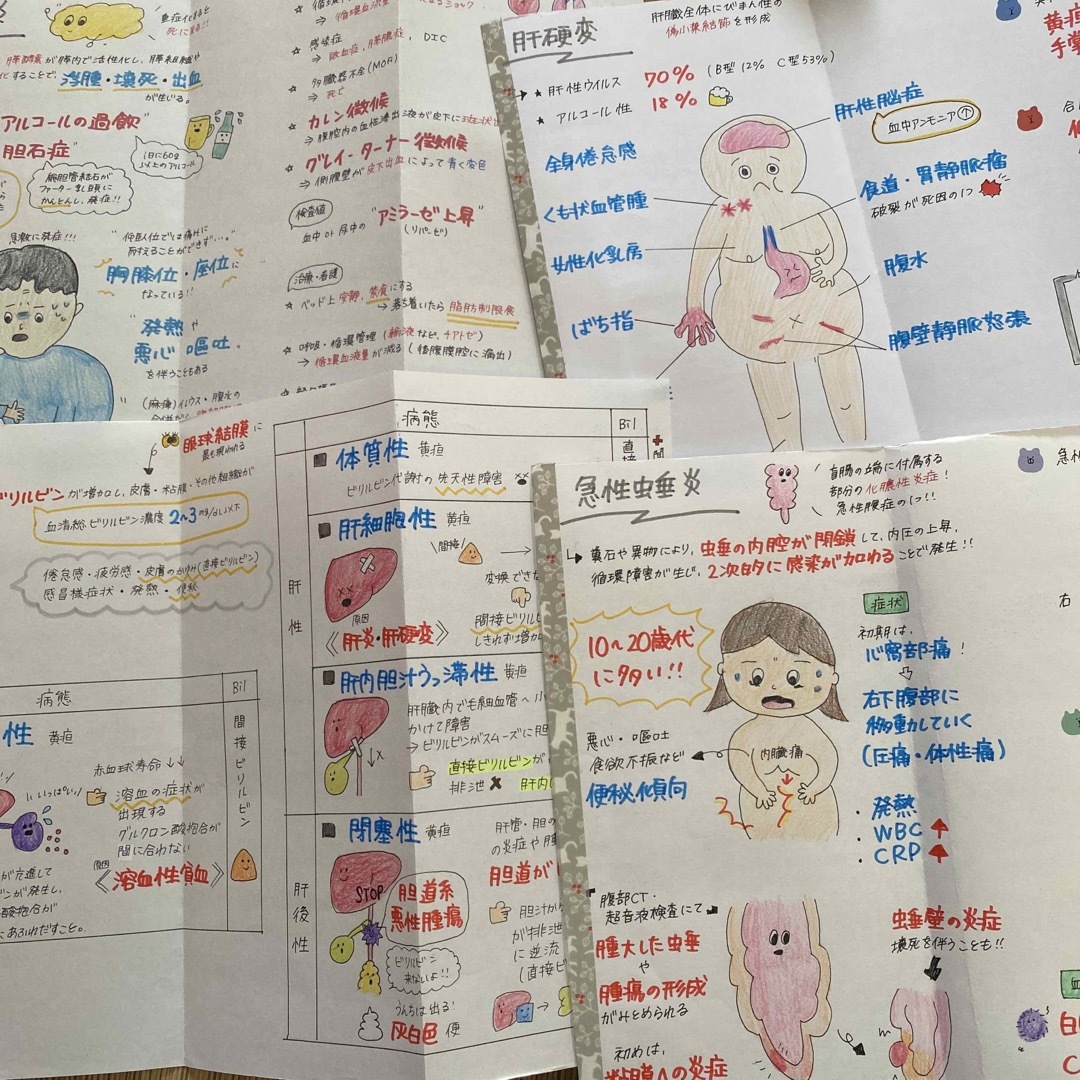 重症化すると
死に至る!!
膵酵素が膵内で活性化し、膵組織や
化することで、浮腫・壊死・出血
が生じる。
アルコールの過飲"
胆石症"
1日に60g
以上のアルコール
総胆管結石が
ファーター乳頭に
かんとんし、発症!!
急激に発症!!!
"仰臥位では痛みに
耐えることができず…。"
胸膝位・座位に
なっている!!
"発熱や
悪心・嘔吐。
を伴うこともある
(麻痺)イレウス・腹水の
⇒循環血流量
ショック
☆ 感染症
⇒敗血症、膵膿瘍、DIC
☆ 多臓器不全(MOF)
⇒死亡
☆ カレン徴候
⇒腹腔内の血性滲出液が皮下に斑状出
☆ グレイ・ターナー徴候
⇒側腹壁が皮下出血によって青く変色
検査値
血中or尿中の"アミラーゼ上昇"
(リパーゼ)
治療・看護
☆ ベッド上安静、禁食にする
→落ち着いたら脂肪制限食
☆ 呼吸・循環管理(輸液など、チアトゼ)
⇒循環血液量が減る(後腹膜腔に漏出)
肝硬変
肝臓全体にびまん性の
偽小葉結節を形成
★ 肝性ウイルス 70% (B型12% C型53%)
★ アルコール性 18%
全身倦怠感
くも状血管腫
女性化乳房
ばち指
肝性脳症
血中アンモニア↑
食道・胃静脈瘤
破裂が死因の1つ
腹水
腹壁静脈怒張
黄疸
手掌
眼球結膜に
最も現われる
ビリルビンが増加し、皮膚・粘膜・その他組織が
血清総ビリルビン濃度2~3mg/dl以下
倦怠感・疲労感・皮膚のかゆみ(直接ビリルビン)
感冒様症状・発熱・便秘
病態
Bil
性 黄疸
間接ビリルビン
赤血球寿命↓↓
いいっぱい!!
溶血の症状が
出現する
グルクロン酸抱合が
間に合わない
原因
《溶血性貧血》
が亢進して
ンが発生し、
酸抱合が
にあふれだすこと。
病態
Bil
直接
肝性
体質性 黄疸
ビリルビン代謝の先天性障害
肝細胞性 黄疸
間接
変換でき
原因
《肝炎・肝硬変》
間接ビリルビ
しきれず増加
肝内胆汁うっ滞性 黄疸
肝臓内で毛細血管~小
かけて障害
→ビリルビンがスムーズに胆
直接ビリルビンが
排泄✖ 肝内
肝後性
閉塞性 黄疸
肝管・胆の
の炎症や腫
STOP
胆道系
悪性腫瘍
胆道が
ビリルビン
来ないよ!!
胆汁が
が排泄
に逆流
(直接ビ
うんちは出る!
灰白色便
急性虫垂炎
盲腸の先端に付属する
部分の化膿性炎症!
急性腹症の1つ!!
糞石や異物により、虫垂の内腔が閉鎖して、内圧の上昇、
循環障害が生じ、2次的に感染が加わることで発生!!
10~20歳代
に多い!!
症状
初期は、
心窩部痛!
右下腹部に
移動していく
(圧痛・体性痛)
内臓痛
悪心・嘔吐
食欲不振など
便秘傾向
・発熱
・WBC↑
・CRP↑
腹部CT・
超音波検査にて
腫大した虫垂
や
腫瘍の形成
がみとめられる
初めは、
粘膜への炎症
虫垂壁の炎症
壊死を伴うことも!!
急性
右
血
白
C